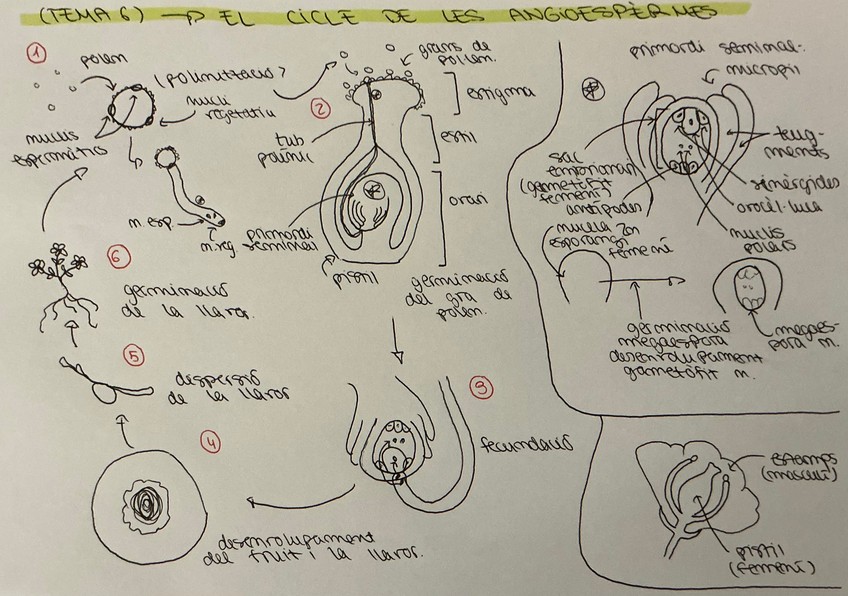 (TEMA 6) → EL CICLE DE LES ANGIOESPÈRMES
1
polen
(pol·linització)
nucli
vegetatiu
nuclis
espermàtics
m. esp.
n. veg
2
grans de
pol·len.
estigma
estil
ovari
tub
pol·línic
primordi
seminal
pistil
germinació
del gra de
polen.
3
fecundació
4
desenvolupament
del fruit i la llavor.
5
dispersió
de la llavor
6
germinació
de la llavor.
primordi seminal.
micropil
tegu-
ments
sac
embrionari
(gametòfit
femení)
antípodes
sinèrgides
oocèl·lula
nuclis
polars
femení
germinació
megaespora
desenvolupament
gametòfit m.
megaes-
pora m.
estams
(masculí)
pistil
(femení)